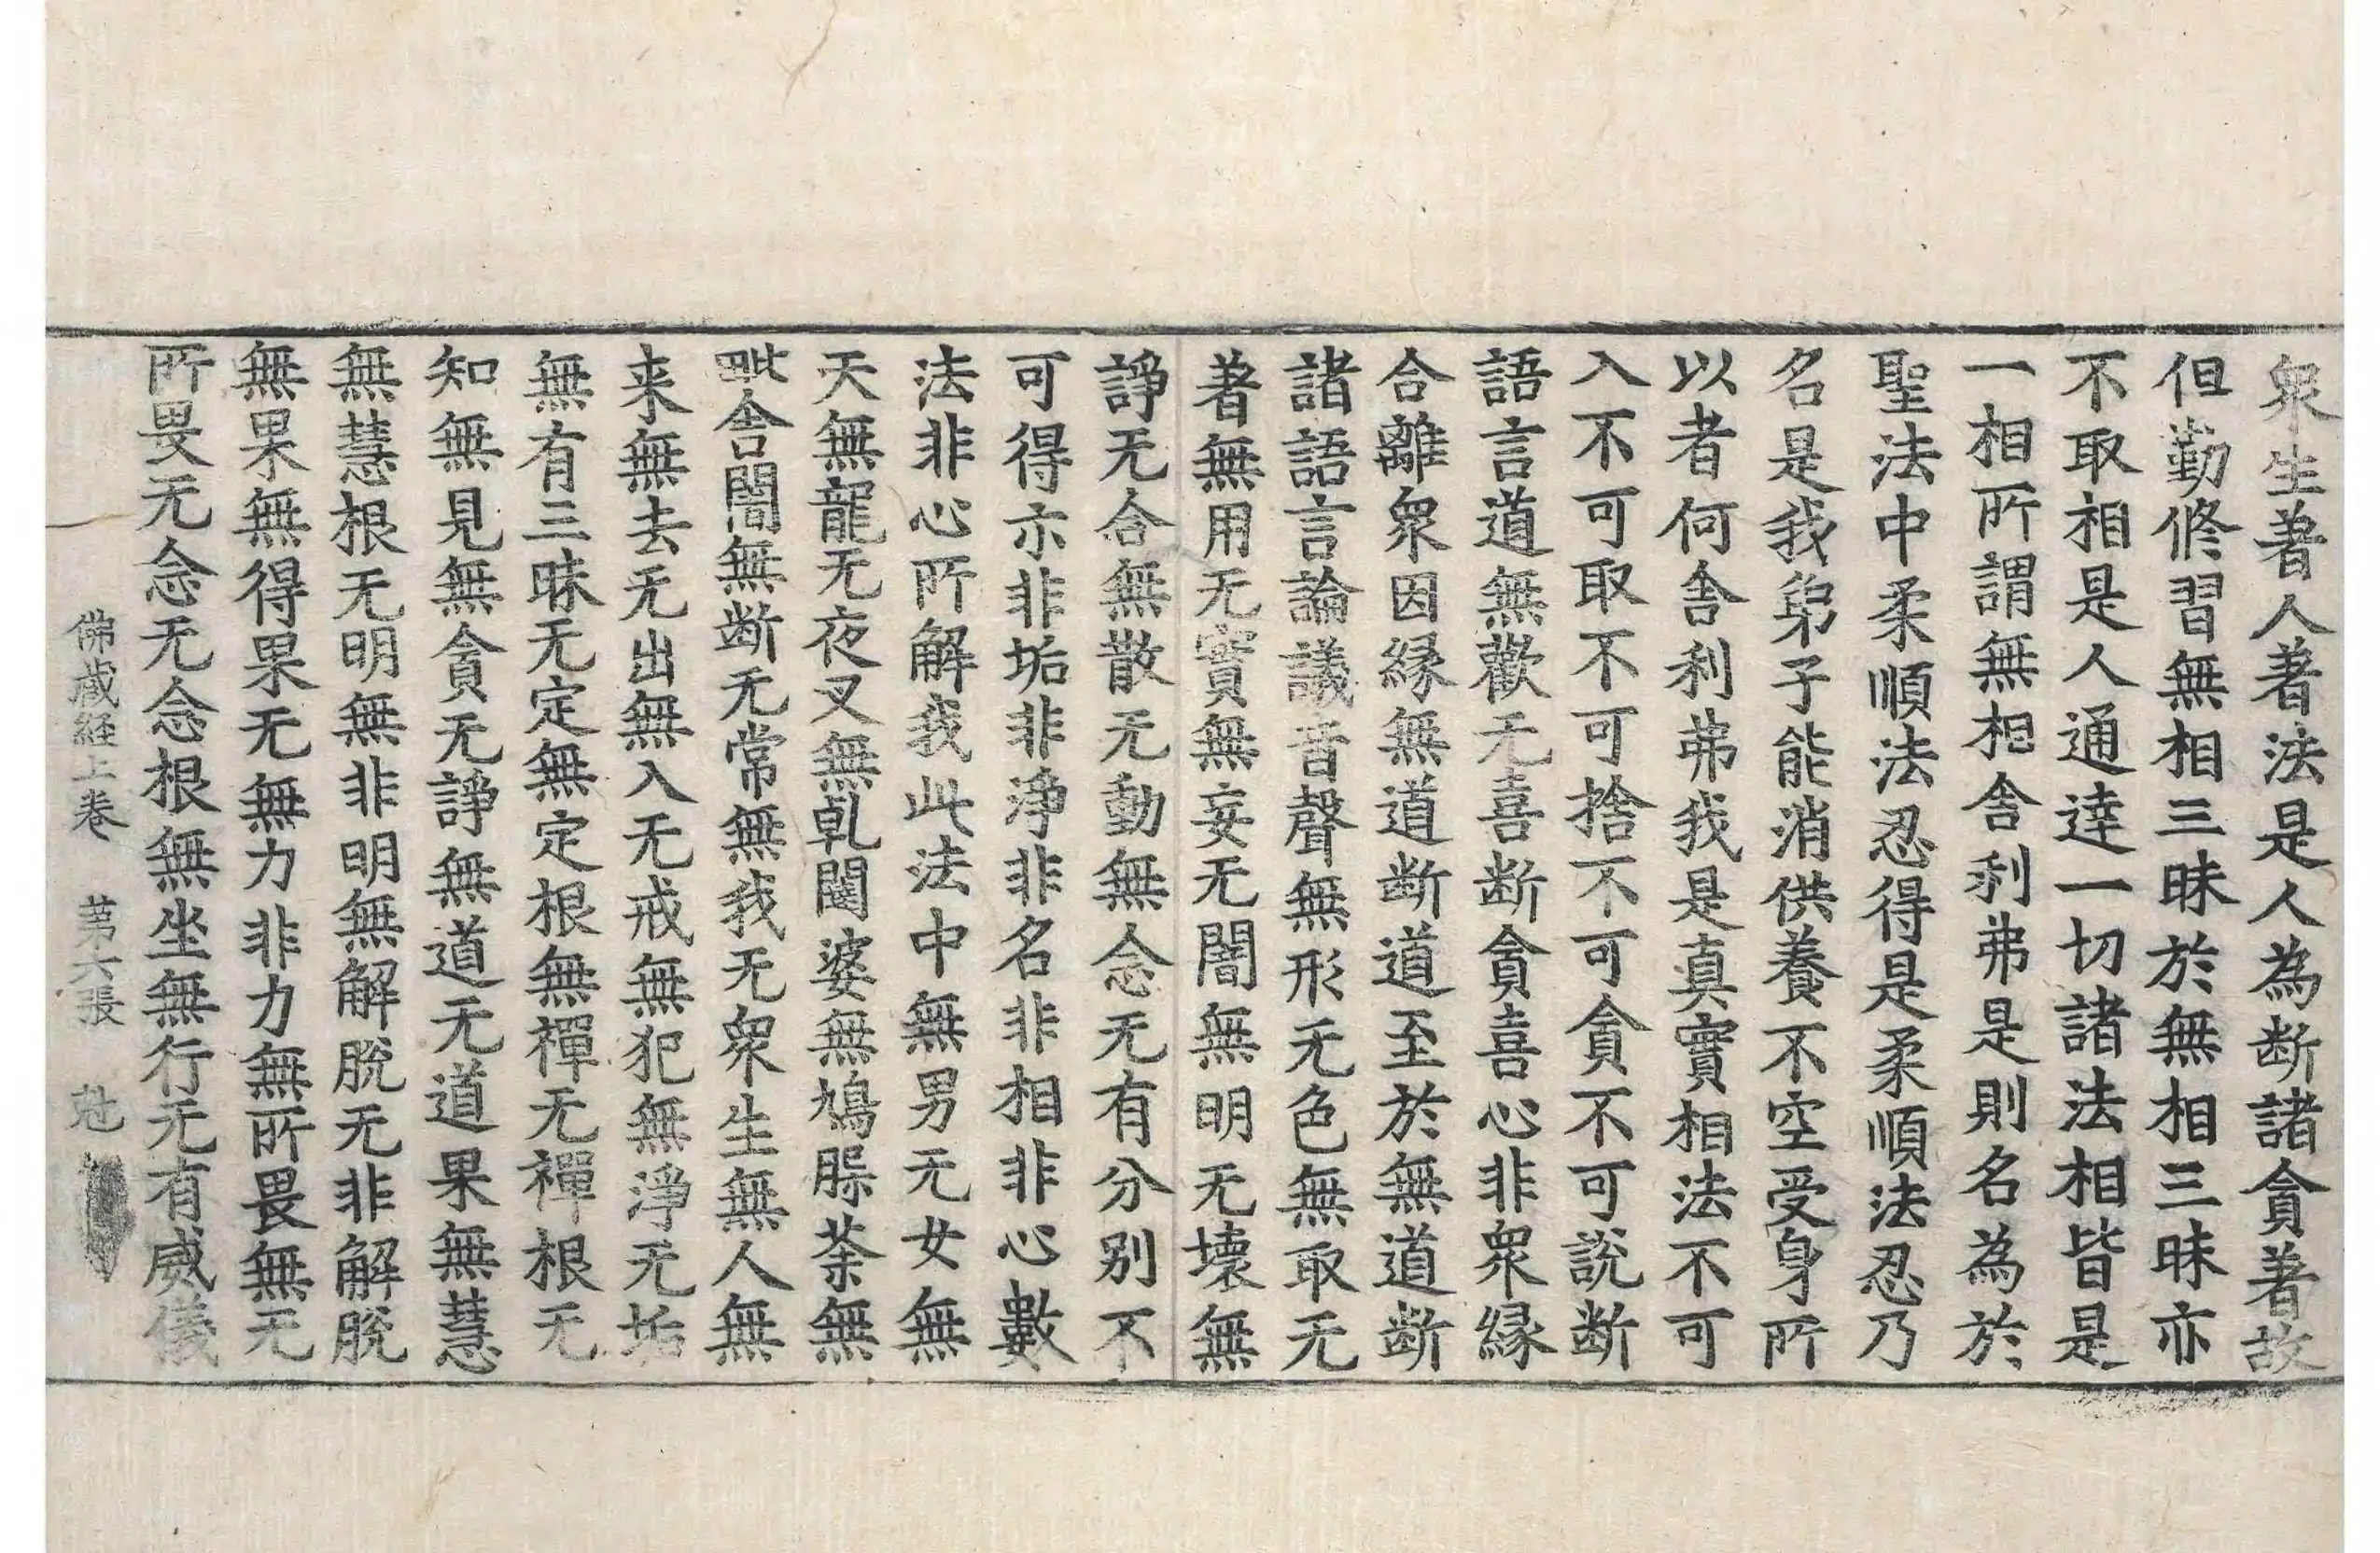 衆生著人著法是人為断諸貪著故
但勤修習無相三昧於無相三昧亦
不取相是人通達一切諸法相皆是
一相所謂無相舎利弗是則名為於
聖法中柔順法忍得是柔順法忍乃
名是我弟子能消供養不空受身所
以者何舎利弗我是真實相法不可
入不可取不可捨不可貪不可說断
語言道無歡无喜断貪喜心非衆緣
合離衆因緣無道断道至於無道断
諸語言論議音聲無形无色無取无
著無用无實無妄无闇無明无壞無
諍无合無散无動無念无有分别不
可得亦非垢非淨非名非相非心數
法非心所解我此法中無男无女無
天無龍无夜叉無乹闥婆無鳩脲荼無
毗舎闍無断无常無我无衆生無人無
来無去无出無入无戒無犯無淨无垢
無有三昧无定無定根無禪无禪根无
知無見無貪无諍無道无道果無慧
無慧根无明無非明無解脫无非解脫
無果無得果无無力非力無所畏無无
所畏无念无念根無坐無行无有威儀
佛蔵経上卷 苐六張 尅